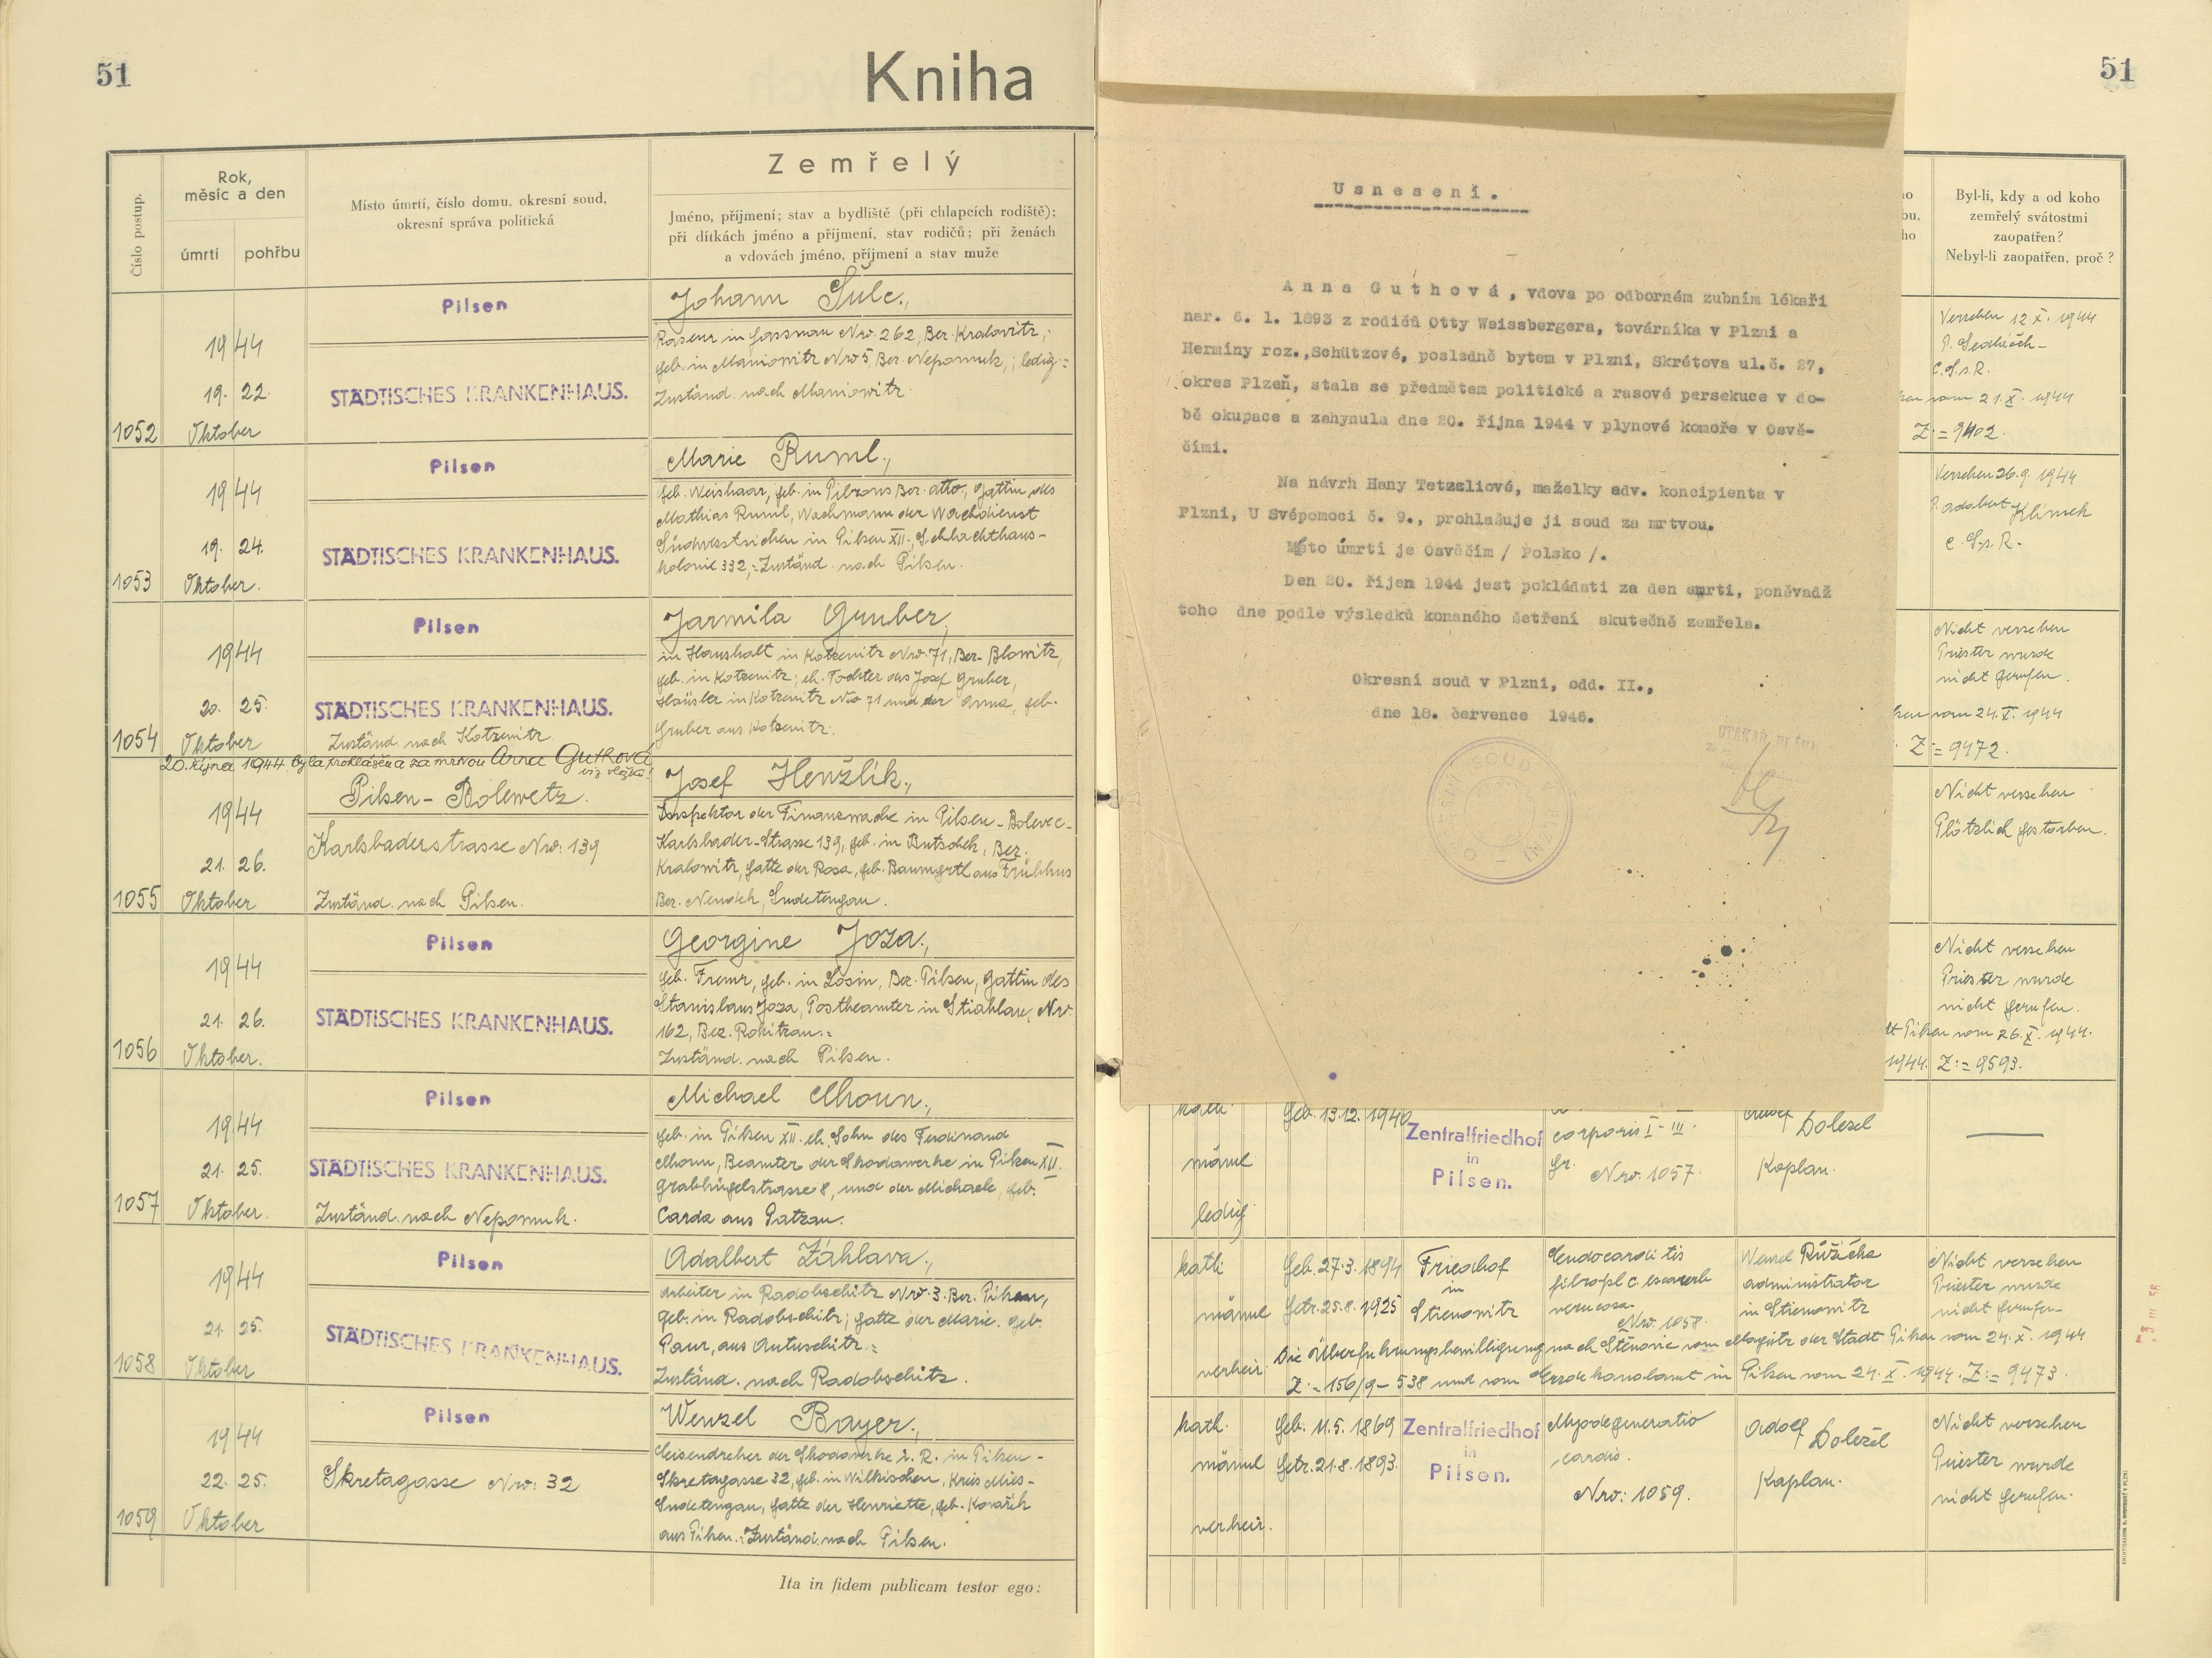 51
Kniha
Číslo postup.
Rok,
měsíc a den
úmrtí
pohřbu
Místo úmrtí, číslo domu, okresní soud,
okresní správa politická
Zemřelý
Jméno, příjmení; stav a bydliště (při chlapcích rodiště);
při dítkách jméno a příjmení, stav rodičů; při ženách
a vdovách jméno, příjmení a stav muže
1052
1944
19. 22.
Oktober
Pilsen
STÄDTISCHES KRANKENHAUS.
Johann Šulc.,
Raseur in Gassnau Nro. 262, Ber. Kralowitz;
geb. in Maniowitz Nro 5, Ber. Nepomuk,; ledig:=
Zuständ. nach Maniowitz.
1053
1944
19. 24.
Oktober.
Pilsen
STÄDTISCHES KRANKENHAUS.
Marie Ruml.,
geb. Weishaar, geb. in Pibrans Ber. dtto., Gattin des
Mathias Ruml, Wachmann der Wachdienst
in Pilsen XII., Schlachthaus-
kolonie 332,:Zuständ. nach Pilsen.
1054
1944
20. 25.
Oktober
Pilsen
STÄDTISCHES KRANKENHAUS.
Zuständ. nach Kotzenitz
Jarmila Gruber,
in Haushalt in Kotzenitz Nro. 71, Ber. Blowitz,
geb. in Kotzenitz; eh. Tochter des Josef Gruber,
Häusler in Kotzenitz Nro 71 und der Anna, geb.
Gruber aus Kotzenitz.
20. října 1944 byla prohlášena za mrtvou Anna Guthová
viz vložka!
1055
1944
21. 26.
Oktober
Pilsen - Bolewetz.
Karlsbaderstrasse Nro: 139
Zuständ. nach Pilsen.
Josef Henžlík.,
Inspektor der Finanzwache in Pilsen - Bolevec -
Karlsbader-Strasse 139, geb. in Butschek, Ber.
Kralowitz, Gatte der Rosa, geb. Baumgrtl aus Frühbus
Ber. Neudek, Sudetengau.
1056
1944
21. 26.
Oktober.
Pilsen
STÄDTISCHES KRANKENHAUS.
Georgine Joza.,
geb. Fremr, geb. in Losin, Bez. Pilsen, Gattin des
Stanislaus Joza, Postbeamter in Stiahlau, Nro.
162, Bez. Rokitzan.:
Zuständ. nach Pilsen.
1057
1944
21. 25.
Oktober.
Pilsen
STÄDTISCHES KRANKENHAUS.
Zuständ. nach Nepomuk.
Michael Mhoun.,
geb. in Pilsen XII. eh. Sohn des Ferdinand
Mhoun, Beamter der Skodawerke in Pilsen XII.
Grabhügelstrasse 8, und der Michaele, geb.
Carda aus Patzau.
1058
1944
21. 25.
Oktober
Pilsen
STÄDTISCHES KRANKENHAUS.
Adalbert Záhlava.,
Arbeiter in Radobschitz Nro. 3. Ber. Pilsen,
geb. in Radobschitz; Gatte der Marie. geb.
Paur, aus Autuschitz.:
Zuständ. nach Radobschitz.
1059
1944
22. 25.
Oktober
Pilsen
Skretagasse Nro: 32
Wenzel Bayer.,
Eisendreher der Skodawerke i. R. in Pilsen -
Skretagasse 32, geb. in Wilkischen, Kreis Mies -
Sudetengau, Gatte der Henriette, geb. Kovařík
aus Pilsen.:Zuständ. nach Pilsen.
Ita in fidem publicam testor ego:
Usnesení.
Anna Guthová, vdova po odborném zubním lékaři
nar. 6. 1. 1893 z rodičů Otty Weissbergera, továrníka v Plzni a
Hermíny roz.,Schützové, posledně bytem v Plzni, Skrétova ul.č. 27,
okres Plzeň, stala se předmětem politické a rasové persekuce v do-
bě okupace a zahynula dne 20. října 1944 v plynové komoře v Osvě-
čimi.
Na návrh Hany Tetzeliové, maželky adv. koncipienta v
Plzni, U Svépomoci č. 9., prohlašuje ji soud za mrtvou.
Místo úmrtí je Osvěčim / Polsko /.
Den 20. říjen 1944 jest pokládati za den smrti, poněvadž
toho dne podle výsledků konaného šetření skutečně zemřela.
Okresní soud v Plzni, odd. II.,
dne 18. července 1946.
51
Byl-li, kdy a od koho
zemřelý svátostmi
zaopatřen?
Nebyl-li zaopatřen, proč?
Versehen 12 X. 1944
P. Sedláček -
C.S.s.R.
vom 21. X. 1944
Z:= 9402.
Versehen 26.9. 1944
P. Adalbert Klimek
C.Ss.R.
Nicht versehen
Priester wurde
nicht gerufen.
vom 24. X. 1944
Z:= 9472.
Nicht versehen
Plötzlich gestorben.
Nicht versehen
Priester wurde
nicht gerufen.
Pilsen vom 26. X. 1944.
1944. Z:= 9593.
kath.
männl
ledig
geb. 13.12. 1940
Zentralfriedhof
in
Pilsen.
corporis I - III.
gr.
Nro. 1057.
Adolf Dolezel
Kaplan.
kath
männl
verheir.
geb. 27.3. 1894
getr. 25.8. 1925
Friedhof
in
Stienowitz
Endocarditis
verucosa.
Nro. 1058.
Wenzel Růžička
administrator
in Stienowitz
Nicht versehen
Priester wurde
nicht gerufen
Die Überfuhrungsbewilligung nach Stěnovic vom Magistr der Stadt Pilsen vom 24. X. 1944
Z:= 156/9 - 538 und vom Bezirkanolamt in Pilsen vom 24. X. 1944. Z:= 9473.
kath.
männl
verheir.
geb. 11.5. 1869
getr. 21.8. 1893.
Zentralfriedhof
in
Pilsen.
Myodegeneratio
cardis.
Nro: 1059.
Adolf Doležel
Kaplan.
Nicht versehen
Priester wurde
nicht gerufen.